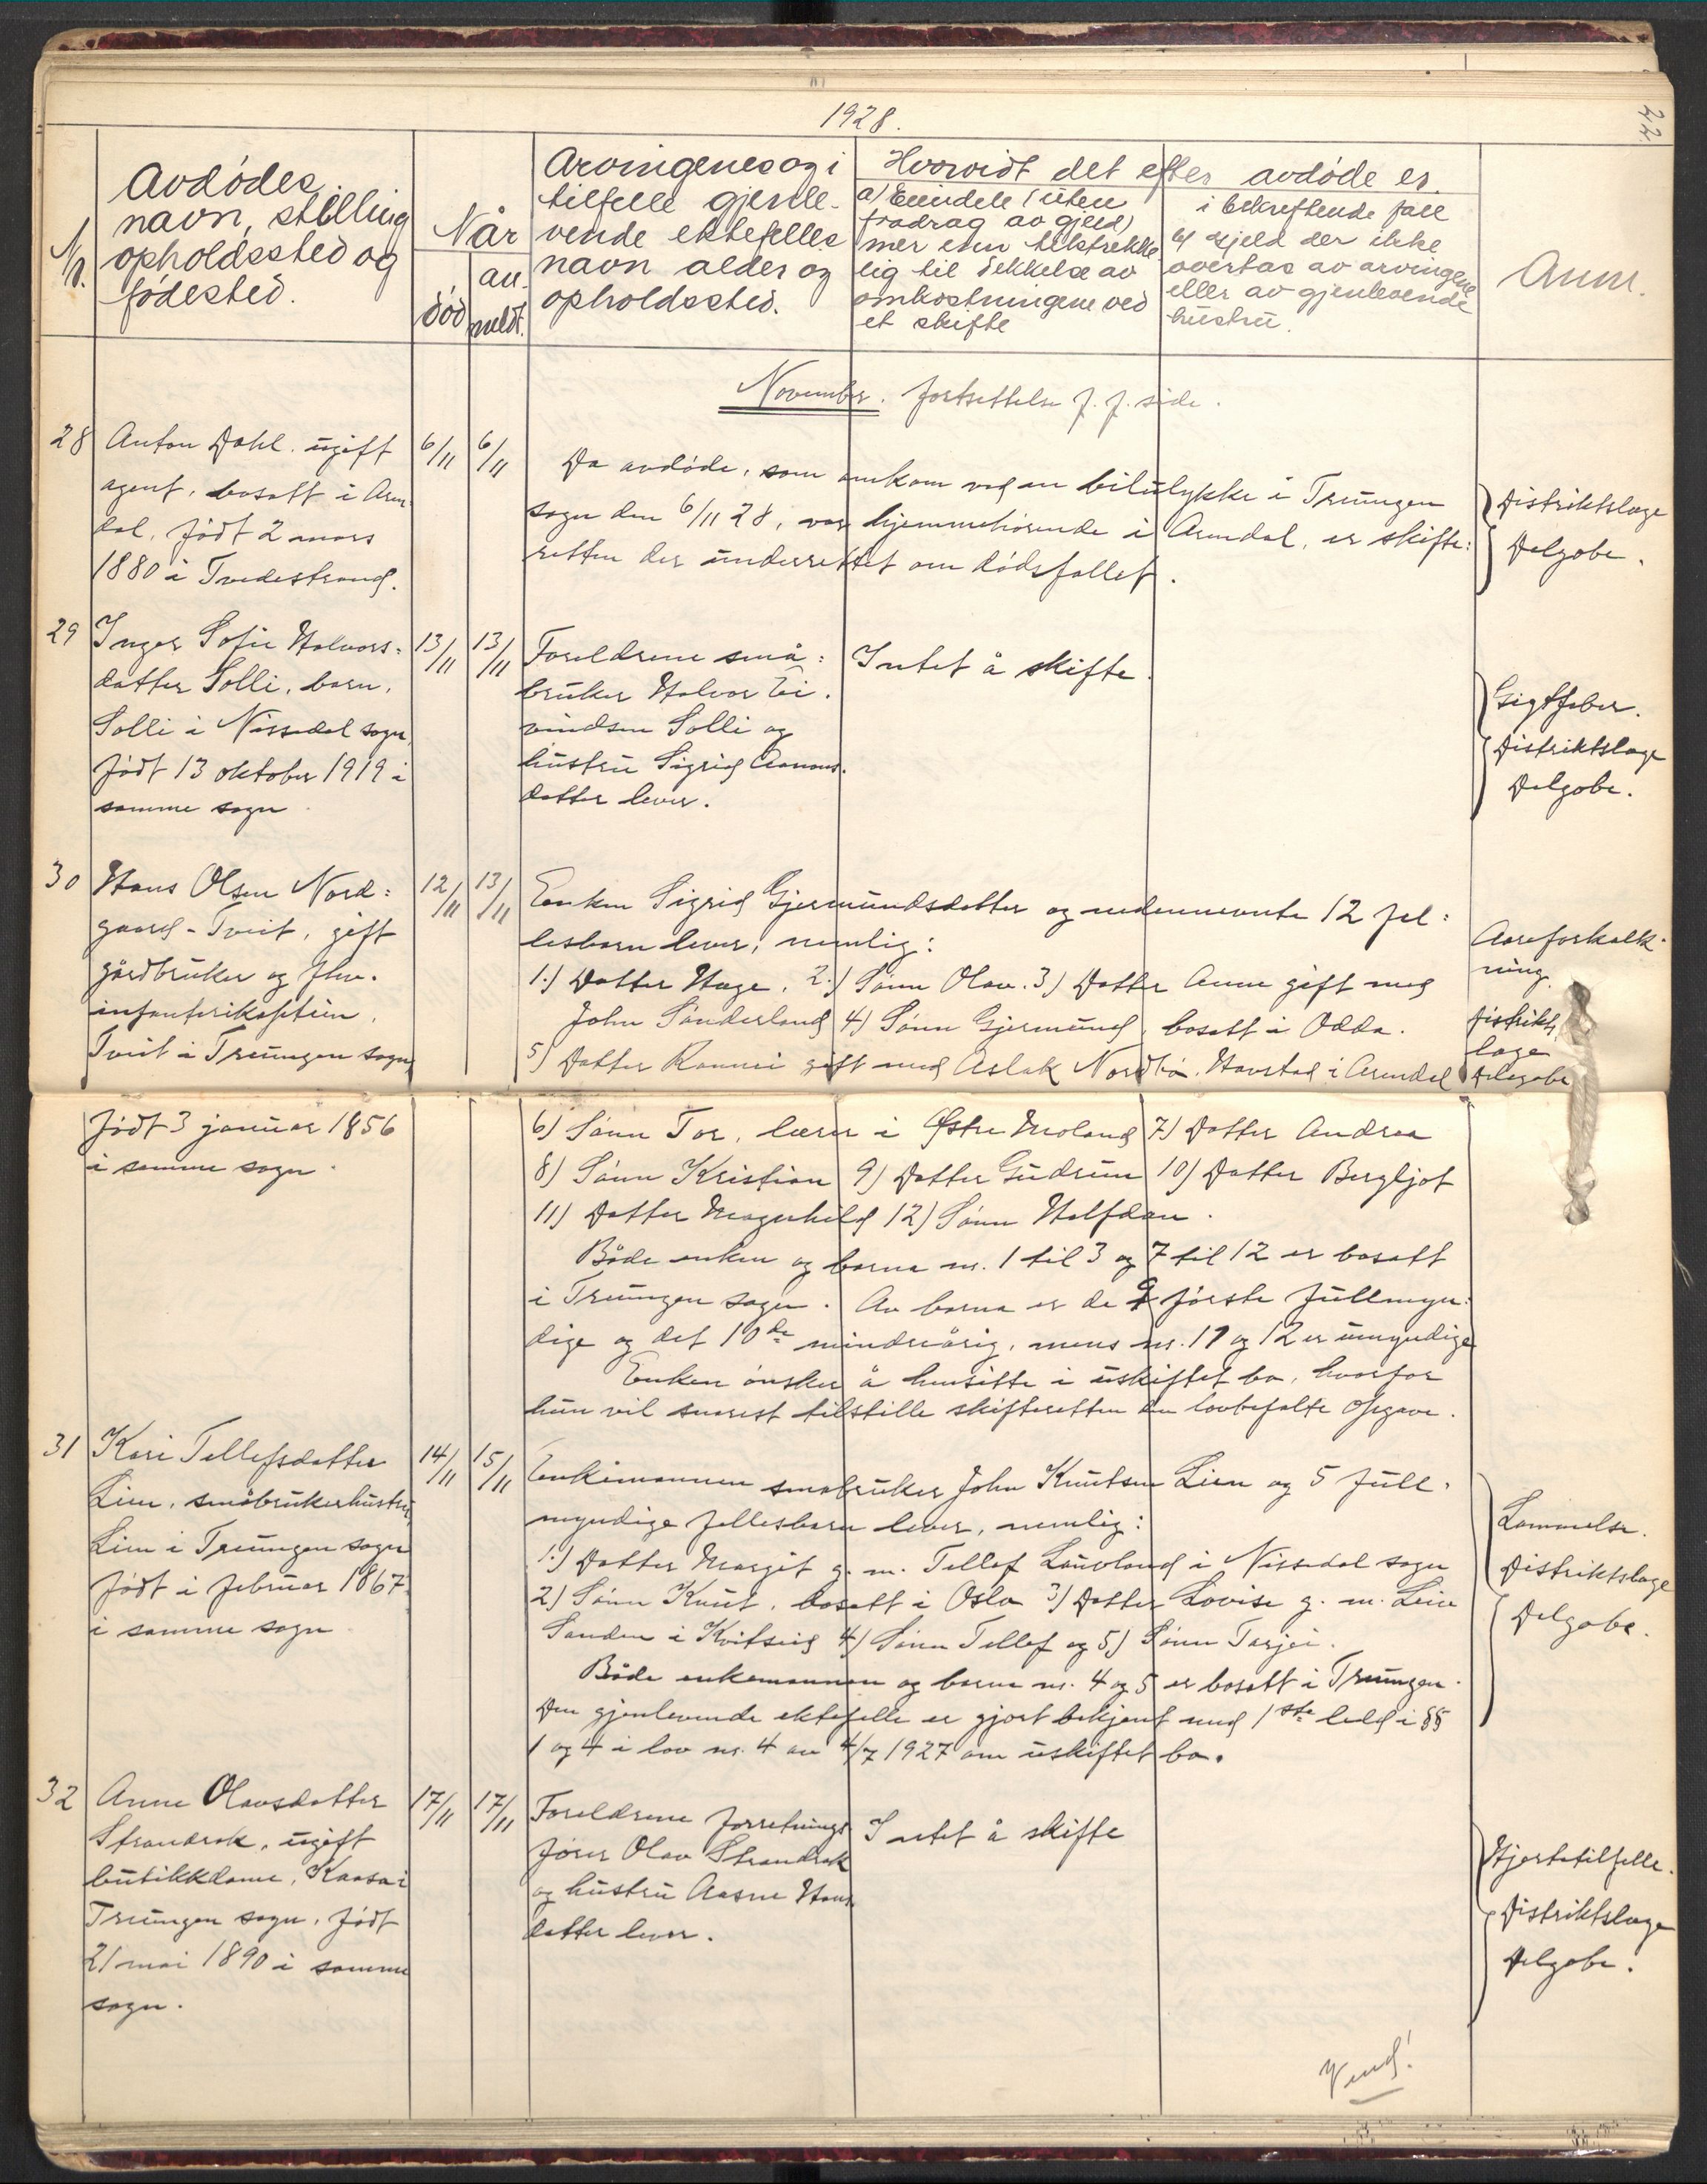 1928.
22
Nr.
Avdødes
navn, stilling
opholdssted og
fødested.
Når
død
an-
meldt.
Arvingenes og i
tilfelle gjenle-
vende ektefelles
navn alder og
opholdssted.
Hvorvidt det efter avdøde er
a) Eiendele (uten
fradrag av gjeld)
mer enn tilstrekke
lig til dekkelse av
omkostningene ved
et skifte
i bekreftende fall
b) gjeld der ikke
overtas av arvingene
eller av gjenlevende
hustru.
Anm.
November. fortsettelse f. f. side.
28
Anton Dahl. ugift
agent, bosatt i Aren-
dal, født 2 mars
1880 i Tvedestrand.
6/11
6/11
Da avdøde, som omkom ved en bilulykke i Treungen
sogn den 6/11 28, var hjemmehørende i Arendal, er skifte=
retten der underrettet om dødsfallet.
Distriktslæge
Dalgobe.
29
Inger Sofie Halvors=
datter Solli, barn,
Solli i Nissedal sogn,
født 13 oktober 1919 i
samme sogn
13/11
13/11
Foreldrene små=
bruker Halvor Ei-
vindsen Solli og
hustru Sigrid Aanons-
datter lever.
Intet å skifte.
Gigtfeber.
Distriktslæge
Dalgobe.
30
Hans Olsen Nord=
gaard-Tveit, gift
gårdbruker og fhv.
infanterikaptein,
Tveit i Treungen sogn
født 3 januar 1856
i samme sogn.
12/11
13/11
Enken Sigrid Gjermundsdatter og nedennevnte 12 fel=
lesbarn lever, nemlig:
1.) Datter Hæge. 2.) Sønn Olav. 3) Datter Anne gift med
John Sønderland 4) Sønn Gjermund, bosatt i Odda.
5) Datter Rannei gift med Aslak Nordbø, Havstad i Arendal
6) Sønn Tor, lærer i Østre Moland 7) Datter Andrea
8) Sønn Kristian 9) Datter Gudrun 10) Datter Bergljot
11) Datter Magnhild 12) Sønn Halfdan.
Både enken og barna nr. 1 til 3 og 7 til 12 er bosatt
i Treungen sogn. Av barna er de 9 første fullmyn=
dige og det 10de mindreårig, mens nr. 11 og 12 er umyndige
Enken ønsker å hensitte i uskiftet bo, hvorfor
hun vil snarest tilstille skifteretten den lovbefalte opgave.
Aareforkalk-
ning.
Distrikts
læge
Dalgobe
31
Kari Tellefsdatter
Lien, småbrukerhustru,
Lien i Treungen sogn
født i februar 1867
i samme sogn
14/11
15/11
Enkemannen småbruker John Knutsen Lien og 5 full-
myndige fellesbarn lever, nemlig:
1.) Datter Margit g. m. Tellef Lauvland i Nissedal sogn
2) Sønn Knut, bosatt i Oslo 3) Datter Lovise g. m. Leiv
Sanden i Kvitseid 4) Sønn Tellef og 5) Sønn Tarjei.
Både enkemannen og barna nr. 4 og 5 er bosatt i Treungen.
Den gjenlevende ektefelle er gjort bekjent med 1ste ledd i §§
1 og 4 i lov nr. 4 av 4/7 1927 om uskiftet bo.
Lammelse.
Distriktslæge
Dalgobe.
32
Anne Olavsdatter
Strandrak, ugift
butikkdame, Kaasa i
Treungen sogn, født
21 mai 1890 i samme
sogn.
17/11
17/11
Foreldrene forretnings
fører Olav Strandrak
og hustru Aasne Hans
datter lever.
Intet å skifte
Hjertetilfelle.
Distriktslæge
Dalgobe.
Vend!